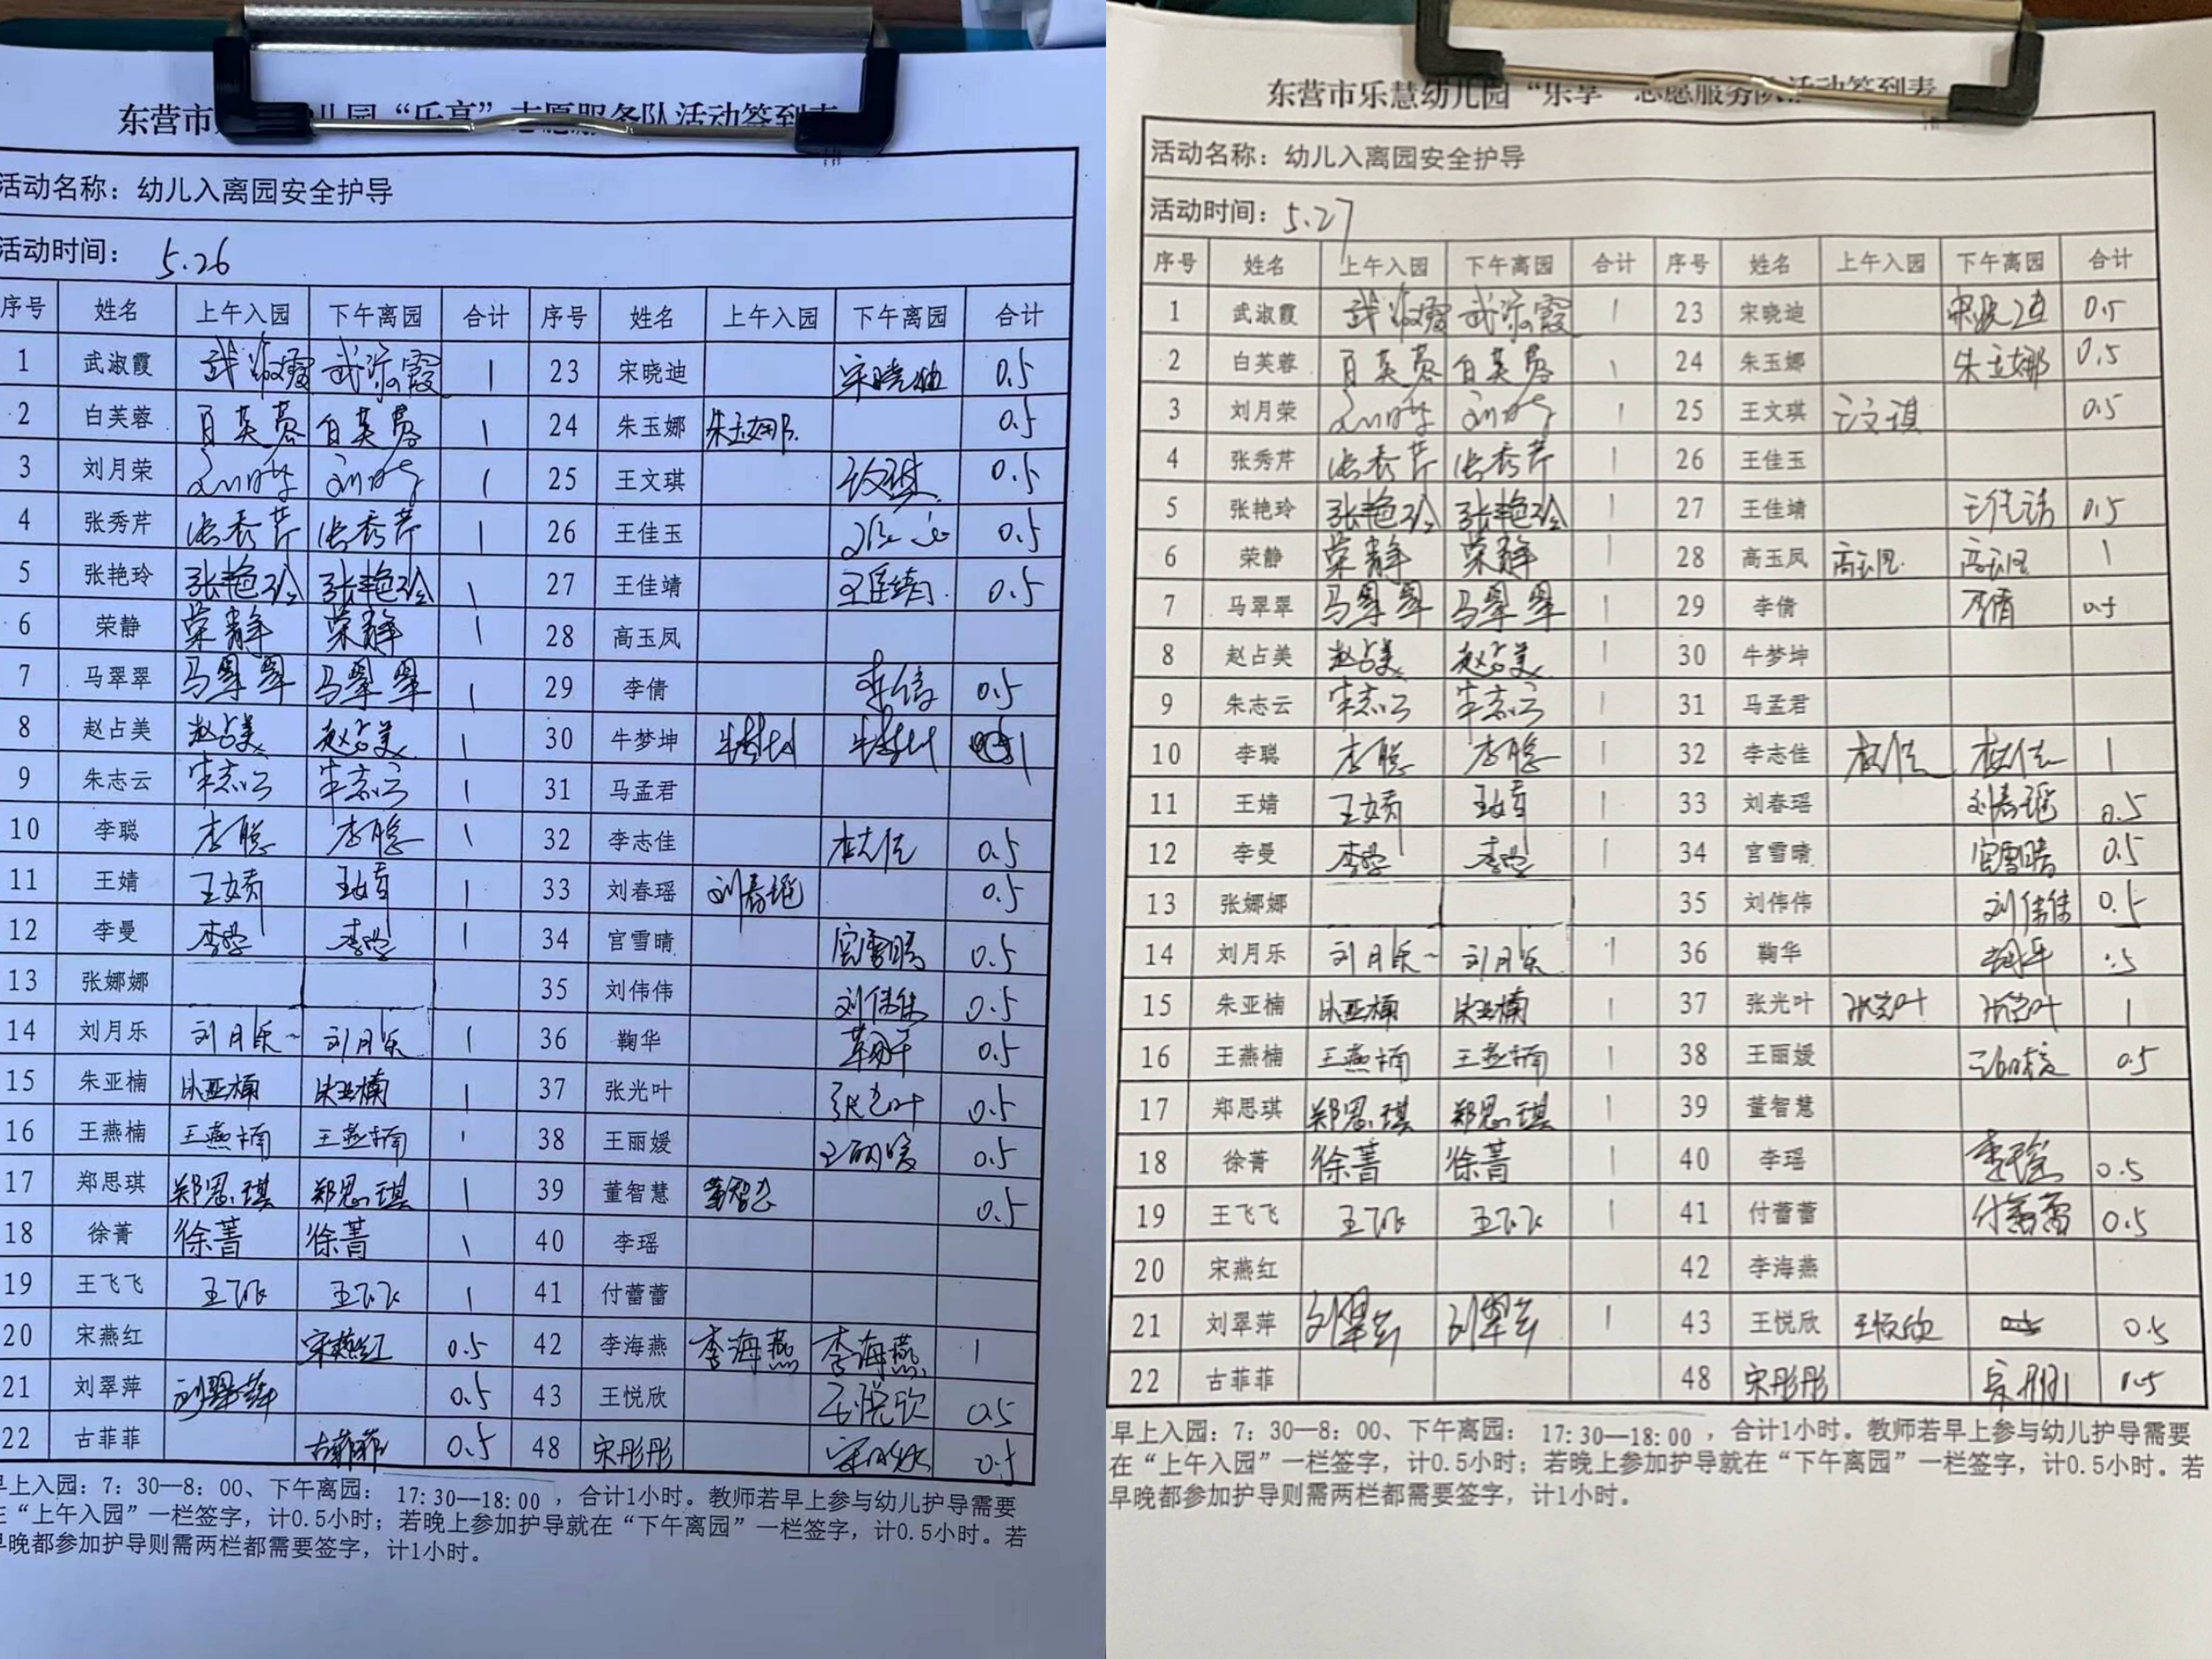 东营市 儿园“乐享”志愿服务队活动签到表
活动名称：幼儿入离园安全护导
活动时间： 5.26
序号 姓名 上午入园 下午离园 合计 序号 姓名 上午入园 下午离园 合计
1 武淑霞 武淑霞 武淑霞 1 23 宋晓迪 宋晓迪 0.5
2 白芙蓉 白芙蓉 白芙蓉 1 24 朱玉娜 朱玉娜 0.5
3 刘月荣 刘月荣 刘月荣 1 25 王文琪 王文琪 0.5
4 张秀芹 张秀芹 张秀芹 1 26 王佳玉 0.5
5 张艳玲 张艳玲 张艳玲 1 27 王佳靖 王佳靖 0.5
6 荣静 荣静 荣静 1 28 高玉凤
7 马翠翠 马翠翠 马翠翠 1 29 李倩 李倩 0.5
8 赵占美 赵占美 赵占美 1 30 牛梦坤 牛梦坤 牛梦坤 1
9 朱志云 朱志云 朱志云 1 31 马孟君
10 李聪 李聪 李聪 1 32 李志佳 李志佳 0.5
11 王婧 王婧 王婧 1 33 刘春瑶 刘春瑶 0.5
12 李曼 李曼 李曼 1 34 宫雪晴 宫雪晴 0.5
13 张娜娜 35 刘伟伟 刘伟伟 0.5
14 刘月乐 刘月乐 刘月乐 1 36 鞠华 鞠华 0.5
15 朱亚楠 朱亚楠 朱亚楠 1 37 张光叶 张光叶 0.5
16 王燕楠 王燕楠 王燕楠 1 38 王丽媛 王丽媛 0.5
17 郑思琪 郑思琪 郑思琪 1 39 董智慧 董智慧 0.5
18 徐菁 徐菁 徐菁 1 40 李瑶
19 王飞飞 王飞飞 王飞飞 1 41 付蕾蕾
20 宋燕红 宋燕红 0.5 42 李海燕 李海燕 李海燕 1
21 刘翠萍 刘翠萍 0.5 43 王悦欣 王悦欣 0.5
22 古菲菲 古菲菲 0.5 48 宋彤彤 0.5
早上入园：7：30—8：00、下午离园： 17:30—18:00 ，合计1小时。教师若早上参与幼儿护导需要
在“上午入园”一栏签字，计0.5小时；若晚上参加护导就在“下午离园”一栏签字，计0.5小时。若
早晚都参加护导则需两栏都需要签字，计1小时。
东营市乐慧幼儿园“乐享”志愿服务队活动签到表
活动名称：幼儿入离园安全护导
活动时间：5.27
序号 姓名 上午入园 下午离园 合计 序号 姓名 上午入园 下午离园 合计
1 武淑霞 武淑霞 武淑霞 1 23 宋晓迪 宋晓迪 0.5
2 白芙蓉 白芙蓉 白芙蓉 1 24 朱玉娜 朱玉娜 0.5
3 刘月荣 刘月荣 刘月荣 1 25 王文琪 王文琪 0.5
4 张秀芹 张秀芹 张秀芹 26 王佳玉
5 张艳玲 张艳玲 张艳玲 1 27 王佳靖 王佳靖 0.5
6 荣静 荣静 荣静 1 28 高玉凤 高玉凤 高玉凤 1
7 马翠翠 马翠翠 马翠翠 1 29 李倩 李倩 0.5
8 赵占美 赵占美 赵占美 1 30 牛梦坤
9 朱志云 朱志云 朱志云 1 31 马孟君
10 李聪 李聪 李聪 1 32 李志佳 李志佳 李志佳 1
11 王婧 王婧 王婧 1 33 刘春瑶 刘春瑶 0.5
12 李曼 李曼 李曼 1 34 宫雪晴 宫雪晴 0.5
13 张娜娜 35 刘伟伟 刘伟伟 0.5
14 刘月乐 刘月乐 刘月乐 1 36 鞠华 鞠华 0.5
15 朱亚楠 朱亚楠 朱亚楠 1 37 张光叶 张光叶 张光叶 1
16 王燕楠 王燕楠 王燕楠 1 38 王丽媛 王丽媛 0.5
17 郑思琪 郑思琪 郑思琪 1 39 董智慧
18 徐菁 徐菁 徐菁 1 40 李瑶 李瑶 0.5
19 王飞飞 王飞飞 王飞飞 1 41 付蕾蕾 付蕾蕾 0.5
20 宋燕红 42 李海燕
21 刘翠萍 刘翠萍 刘翠萍 1 43 王悦欣 王悦欣 0.5 0.5
22 古菲菲 48 宋彤彤 宋彤彤
早上入园：7：30—8：00、下午离园： 17:30—18:00 ，合计1小时。教师若早上参与幼儿护导需要
在“上午入园”一栏签字，计0.5小时；若晚上参加护导就在“下午离园”一栏签字，计0.5小时。若
早晚都参加护导则需两栏都需要签字，计1小时。